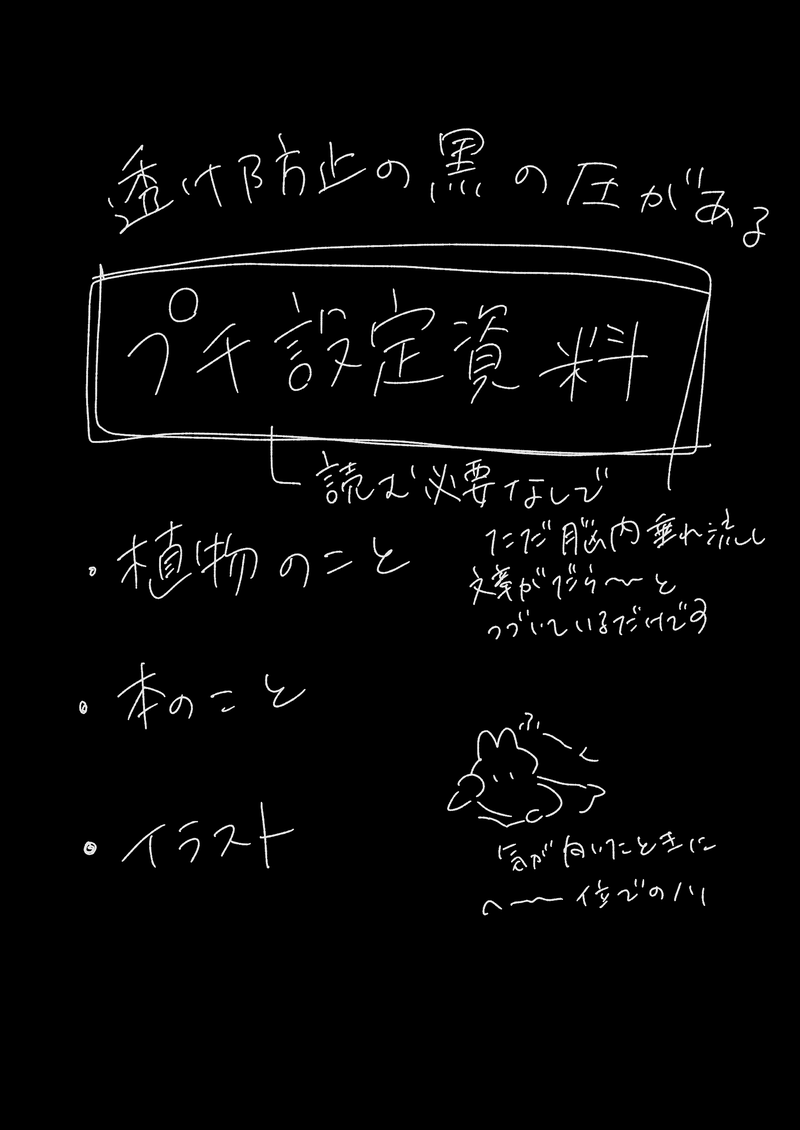 透け防止の黒の圧がある
プチ設定資料
読む必要なしで
ただ脳内垂れ流し
文章がだら〜〜と
つづいているだけです
・植物のこと
・本のこと
・イラスト
ふ〜
気が向いたときに
へ〜〜位でのノリ